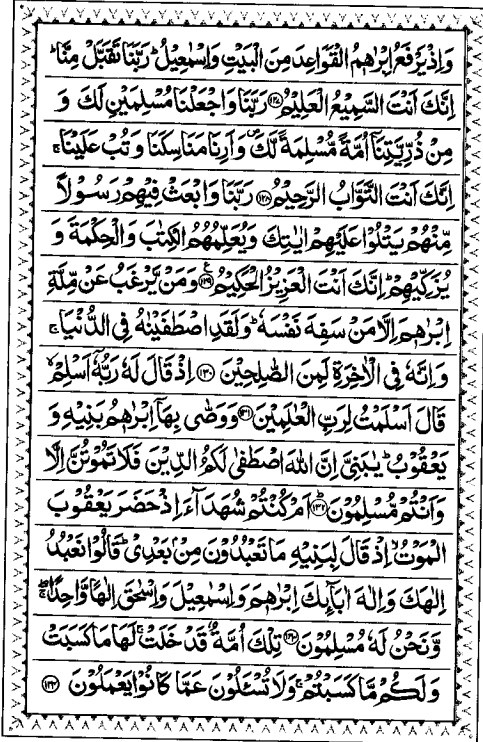 وَاِذْ يَرْفَعُ اِبْرٰهٖمُ الْقَوَاعِدَ مِنَ الْبَيْتِ وَاِسْمٰعِيْلُ ؕ رَبَّنَا تَقَبَّلْ مِنَّا ؕ
اِنَّكَ اَنْتَ السَّمِيْعُ الْعَلِيْمُ ﴿۱۲۷﴾ رَبَّنَا وَاجْعَلْنَا مُسْلِمَيْنِ لَكَ وَ
مِنْ ذُرِّيَّتِنَاۤ اُمَّةً مُّسْلِمَةً لَّكَ ۪ وَاَرِنَا مَنَاسِكَنَا وَتُبْ عَلَيْنَا ۚ
اِنَّكَ اَنْتَ التَّوَّابُ الرَّحِيْمُ ﴿۱۲۸﴾ رَبَّنَا وَابْعَثْ فِيْهِمْ رَسُوْلًا
مِّنْهُمْ يَتْلُوْا عَلَيْهِمْ اٰيٰتِكَ وَيُعَلِّمُهُمُ الْكِتٰبَ وَالْحِكْمَةَ وَ
يُزَكِّيْهِمْ ؕ اِنَّكَ اَنْتَ الْعَزِيْزُ الْحَكِيْمُ ﴿۱۲۹﴾ ع وَمَنْ يَّرْغَبُ عَنْ مِّلَّةِ
اِبْرٰهٖمَ اِلَّا مَنْ سَفِهَ نَفْسَهٗ ؕ وَلَقَدِ اصْطَفَيْنٰهُ فِى الدُّنْيَا ۚ
وَاِنَّهٗ فِى الْاٰخِرَةِ لَمِنَ الصّٰلِحِيْنَ ﴿۱۳۰﴾ اِذْ قَالَ لَهٗ رَبُّهٗۤ اَسْلِمْ ۙ
قَالَ اَسْلَمْتُ لِرَبِّ الْعٰلَمِيْنَ ﴿۱۳۱﴾ وَوَصّٰى بِهَاۤ اِبْرٰهٖمُ بَنِيْهِ وَ
يَعْقُوْبُ ؕ يٰبَنِىَّ اِنَّ اللّٰهَ اصْطَفٰى لَكُمُ الدِّيْنَ فَلَا تَمُوْتُنَّ اِلَّا
وَاَنْتُمْ مُّسْلِمُوْنَ ؕ ﴿۱۳۲﴾ اَمْ كُنْتُمْ شُهَدَآءَ اِذْ حَضَرَ يَعْقُوْبَ
الْمَوْتُ ۙ اِذْ قَالَ لِبَنِيْهِ مَا تَعْبُدُوْنَ مِنْۢ بَعْدِىْ ؕ قَالُوْا نَعْبُدُ
اِلٰهَكَ وَاِلٰهَ اٰبَآئِكَ اِبْرٰهٖمَ وَاِسْمٰعِيْلَ وَاِسْحٰقَ اِلٰهًا وَّاحِدًا ۖۚ
وَّنَحْنُ لَهٗ مُسْلِمُوْنَ ﴿۱۳۳﴾ تِلْكَ اُمَّةٌ قَدْ خَلَتْ ۚ لَهَا مَا كَسَبَتْ
وَلَكُمْ مَّا كَسَبْتُمْ ۚ وَلَا تُسْئَلُوْنَ عَمَّا كَانُوْا يَعْمَلُوْنَ ﴿۱۳۴﴾